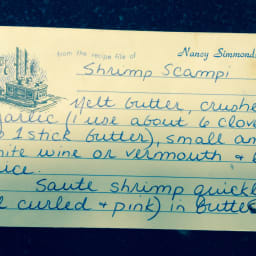 from the recipe file of Nancy Simmonds
Shrimp Scampi
Melt butter, crushe
garlic (I use about 6 clove
o 1 stick butter), small am
hite wine or vermouth & l
uice.
Saute shrimp quickl
l curled & pink) in butte